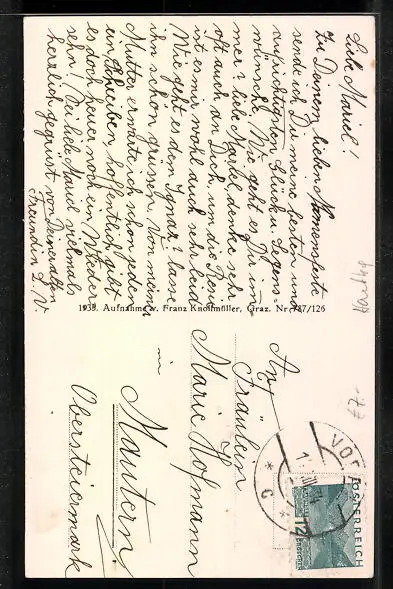 Liebe Mariel!
Zu Deinem lieben Namensfeste
sende ich Dir meine besten und
aufrichtigsten Glück u. Segens=
wünsche. Wie geht es Dir im=
mer? liebe Mariel, denke sehr
oft auch an Dich, um die
ist es mir wohl auch sehr leid
Wie geht es den Ignaz? lasse
ihn schon grüssen. Von meiner
Mutter erwarte ich schon jeden
ein Schreiben, hoffentlich gibt
es doch heuer noch ein Wieder
sehn! Sei liebe Mariel vielmals
herzlich gegrüsst von Deiner alten
Freundin L. V.
1933. Aufnahme v. Franz Knollmüller, Graz. Nr. 787/126
An
Fräulein
Marie Hofmann
in
Mautern
Obersteiermark
VOR
ÖSTERREICH
12
GROSCHEN